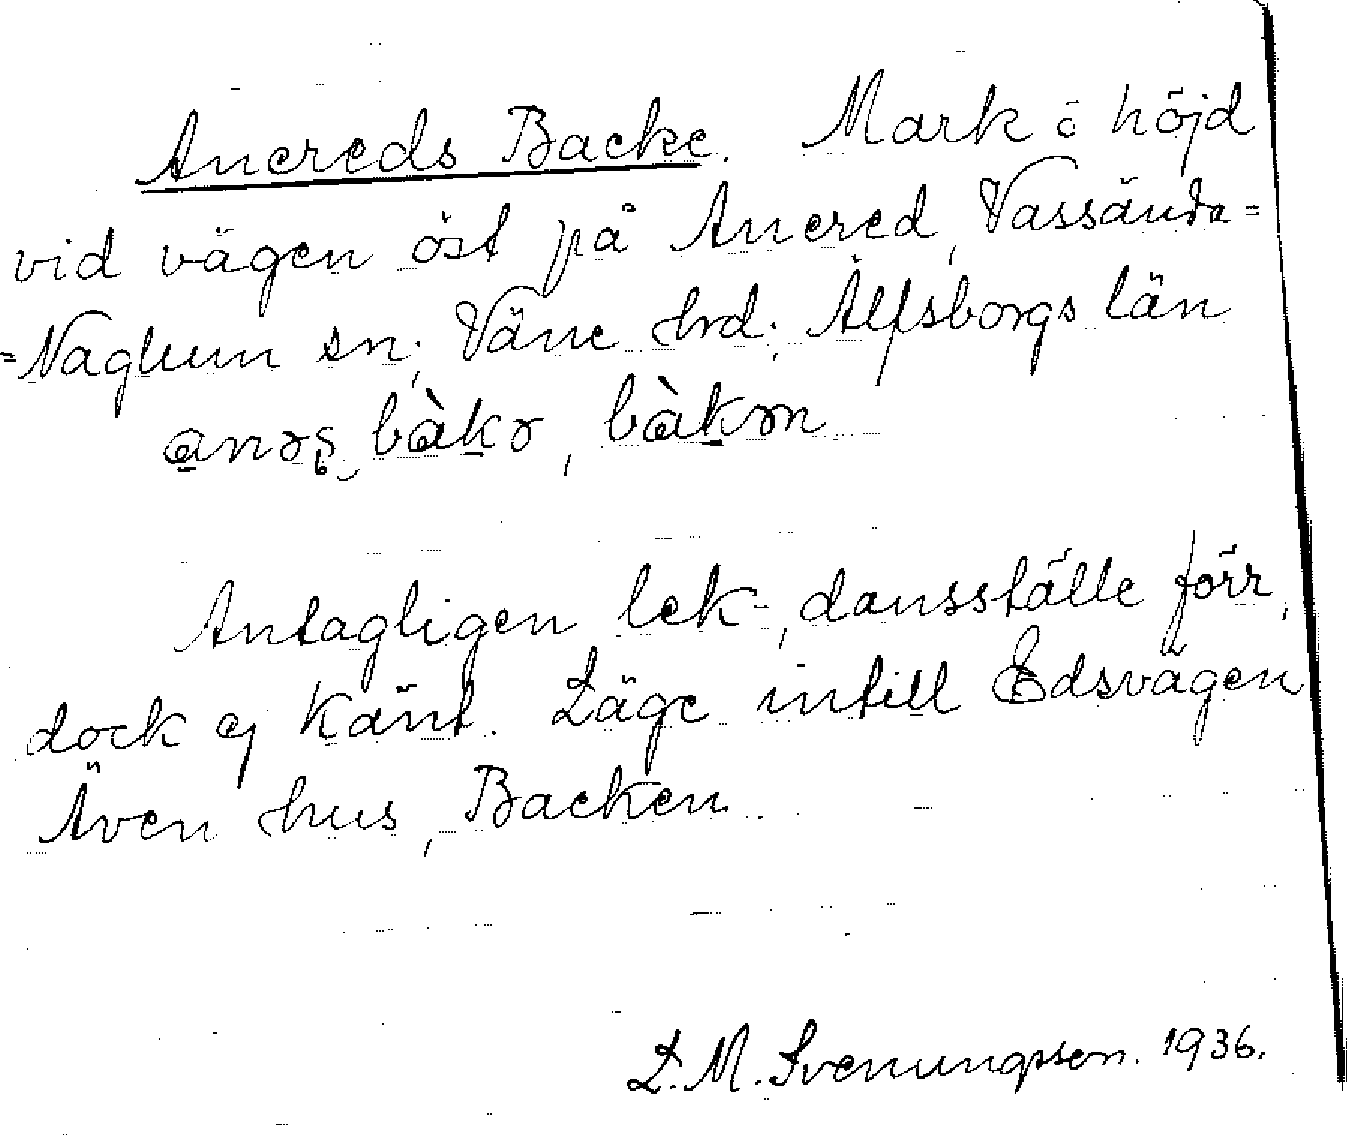 Anereds Backe. Mark o höjd
vid vägen öst på Anered, Vassända=
=Naglum sn; Väne hrd; Älfsborgs län
bàkə, bàkən
Antagligen lek-, dansställe förr,
dock ej känt. Läge intill Edsvägen
Även hus, Backen.
L. M. Svenungsson. 1936.